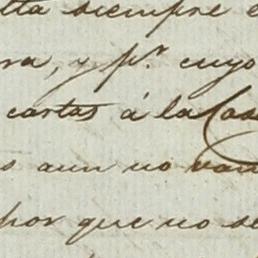 tta siempre e
ra, y pr. cuyo
cartas á la Cas
s aun no van
por que no se